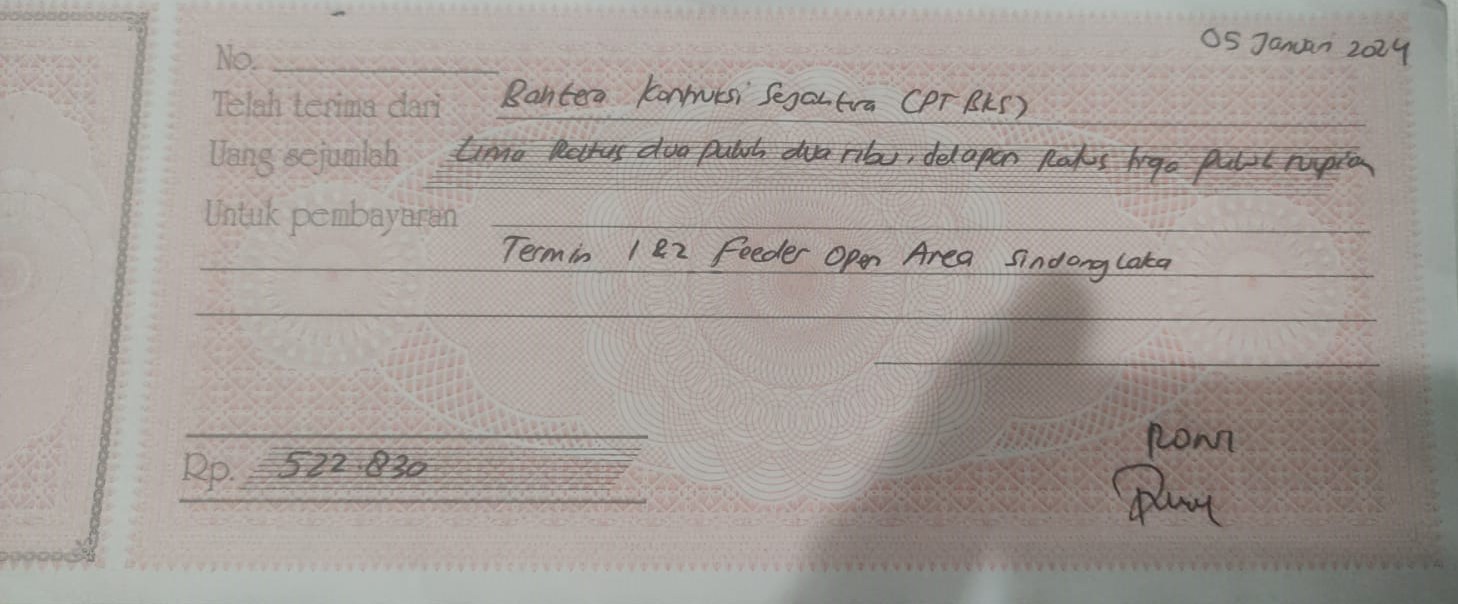 05 Januari 2024
No.
Telah terima dari Bahtera Kontruksi Sejahtera (PT BKS)
Uang sejumlah Lima Ratus dua puluh dua ribu, delapan Ratus tiga puluh rupiah
Untuk pembayaran
Termin 1 & 2 Feeder Open Area Sindanglaka
Rp. 522.830
Roni